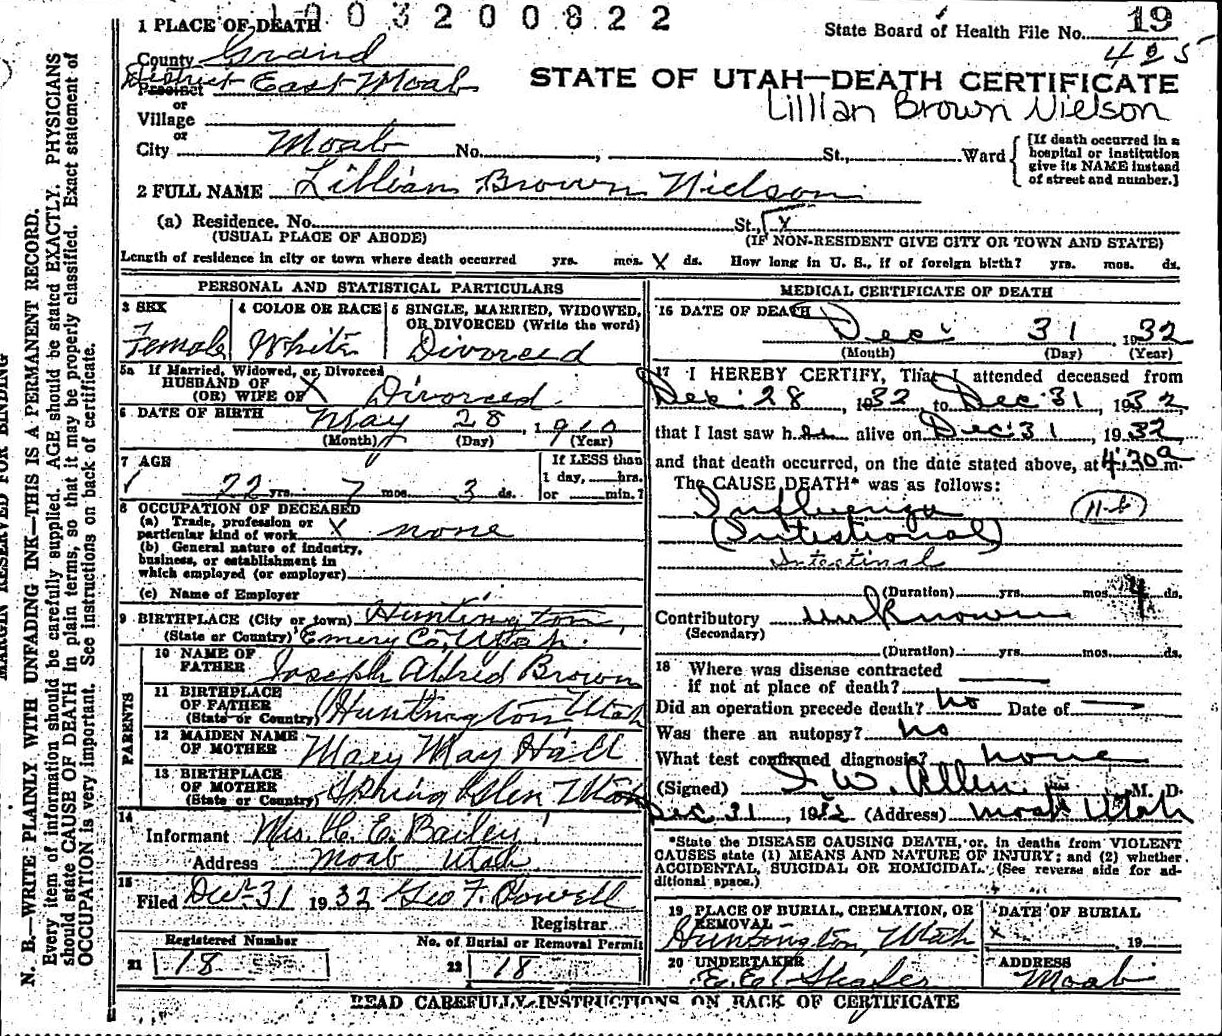 1003200822
1 PLACE OF DEATH
State Board of Health File No. 19
425
County Grand
District Precinct East Moab
STATE OF UTAH—DEATH CERTIFICATE
Lillian Brown Nielson
or
Village
or
City Moab No. , St., Ward
[If death occurred in a
hospital or institution
give its NAME instead
of street and number.]
2 FULL NAME Lillian Brown Nielson
(a) Residence. No. St., X
(USUAL PLACE OF ABODE) (IF NON-RESIDENT GIVE CITY OR TOWN AND STATE)
Length of residence in city or town where death occurred yrs. mos. X ds. How long in U. S., if of foreign birth? yrs. mos. ds.
PERSONAL AND STATISTICAL PARTICULARS
3 SEX 4 COLOR OR RACE 5 SINGLE, MARRIED, WIDOWED,
OR DIVORCED (Write the word)
Female White Divorced
5a If Married, Widowed, or Divorced
HUSBAND OF
(OR) WIFE OF X Divorced
6 DATE OF BIRTH May 28, 1910
(Month) (Day) (Year)
7 AGE If LESS than
1 day, hrs.
22 yrs. 7 mos. 3 ds. or min.?
8 OCCUPATION OF DECEASED
(a) Trade, profession or
particular kind of work X none
(b) General nature of industry,
business, or establishment in
which employed (or employer)
(c) Name of Employer
9 BIRTHPLACE (City or town) Huntington
(State or Country) Emery Co, Utah.
PARENTS
10 NAME OF
FATHER Joseph Aldred Brown
11 BIRTHPLACE
OF FATHER
(State or Country) Huntington Utah
12 MAIDEN NAME
OF MOTHER Mary May Hall
13 BIRTHPLACE
OF MOTHER
(State or Country) Spring Glen Utah
14
Informant Mrs. H. E. Bailey
Address Moab Utah
15
Filed Dec 31 1932 Geo F. Powell
Registrar
Registered Number No. of Burial or Removal Permit
21 18 22 18
MEDICAL CERTIFICATE OF DEATH
16 DATE OF DEATH
Dec. 31, 1932
(Month) (Day) (Year)
17 I HEREBY CERTIFY, That I attended deceased from
Dec. 28, 1932 to Dec. 31, 1932,
that I last saw her alive on Dec. 31, 1932
and that death occurred, on the date stated above, at 4:30 a m.
The CAUSE DEATH* was as follows:
Influenza 11-b
(Intestional)
Intestinal
(Duration) yrs. mos. 4 ds.
Contributory unknown
(Secondary)
(Duration) yrs. mos. ds.
18 Where was disease contracted
if not at place of death?
Did an operation precede death? no Date of
Was there an autopsy? no
What test confirmed diagnosis? none
(Signed) I. W. Allen M. D.
Dec 31, 1932 (Address) Moab Utah
*State the DISEASE CAUSING DEATH, or, in deaths from VIOLENT
CAUSES state (1) MEANS AND NATURE OF INJURY; and (2) whether
ACCIDENTAL, SUICIDAL OR HOMICIDAL. (See reverse side for ad-
ditional space.)
19 PLACE OF BURIAL, CREMATION, OR
REMOVAL
Huntington, Utah
DATE OF BURIAL
X , 19
20 UNDERTAKER ADDRESS
Moab
READ CAREFULLY INSTRUCTIONS ON BACK OF CERTIFICATE
MARGIN RESERVED FOR BINDING
N. B.—WRITE PLAINLY WITH UNFADING INK—THIS IS A PERMANENT RECORD.
Every item of information should be carefully supplied. AGE should be stated EXACTLY. PHYSICIANS
should state CAUSE OF DEATH in plain terms, so that it may be properly classified. Exact statement of
OCCUPATION is very important. See instructions on back of certificate.